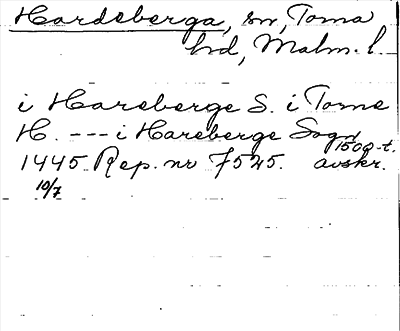 Hardeberga, sn, Torna
hd, Malm. l.
i Hareberge S. i Torne
H. --- i Hareberge Sogn
1500-t.
1445 Rep. nr 7545. avskr.
10/7